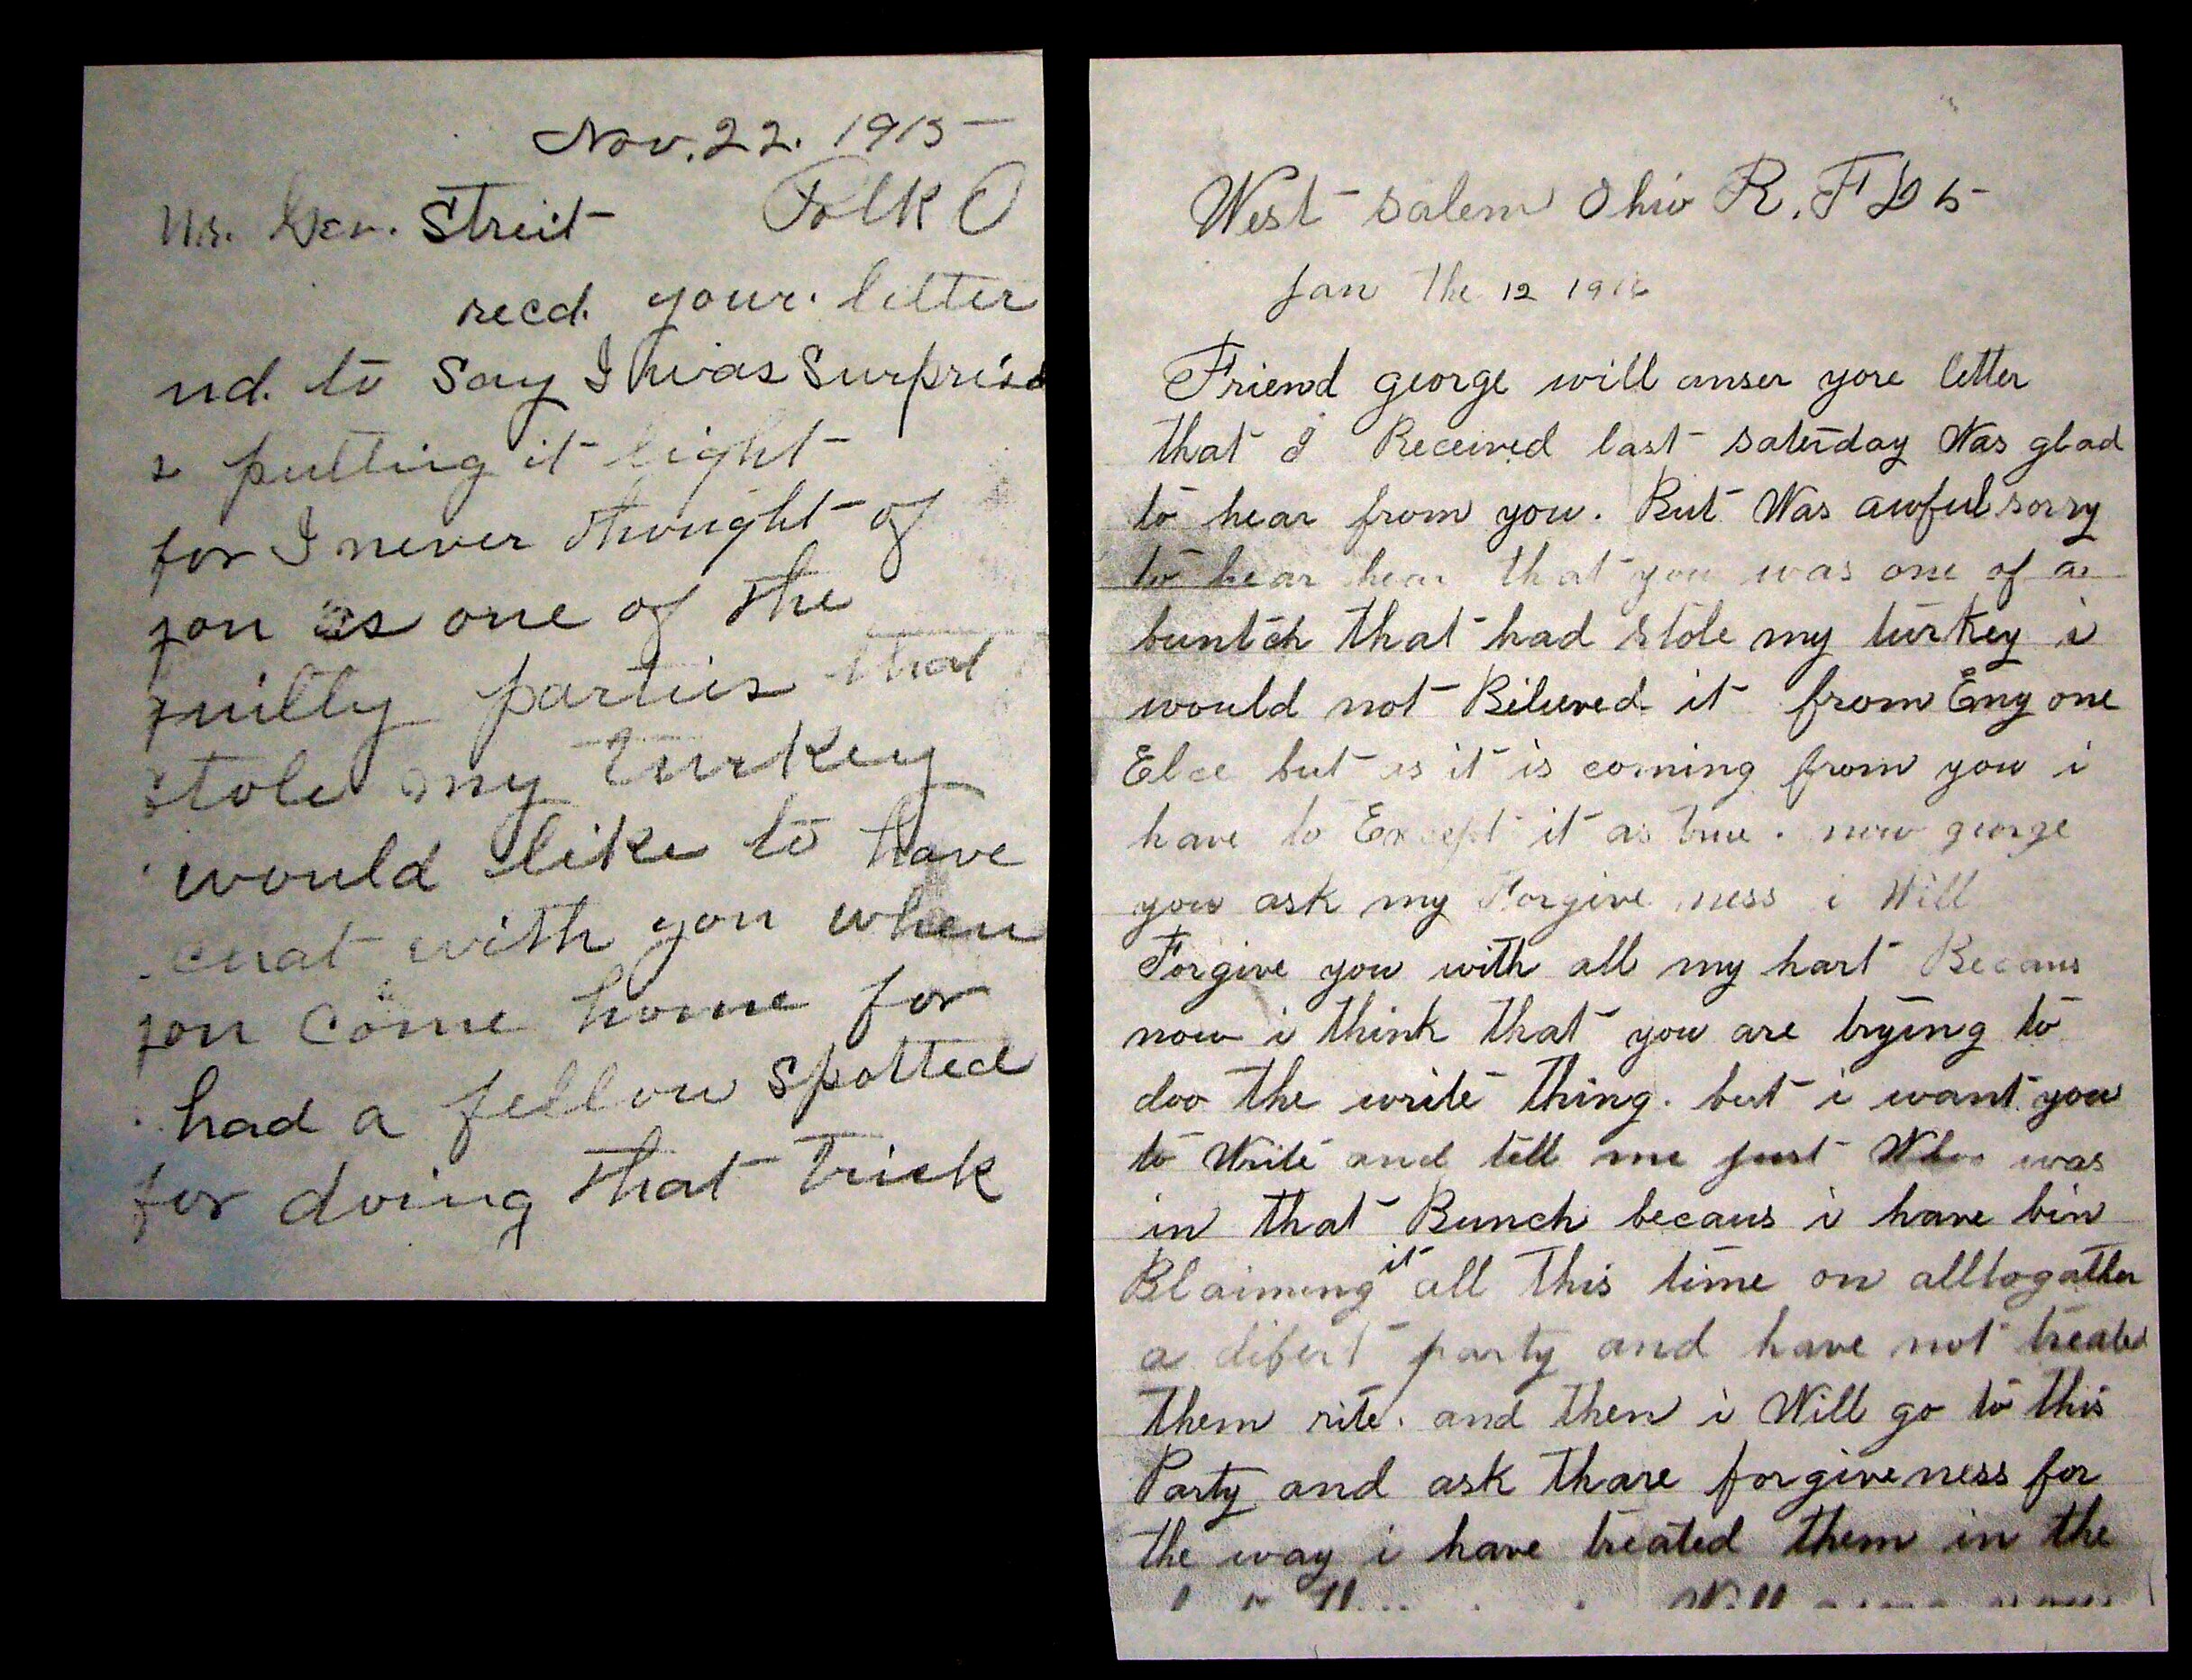 Nov. 22. 1915
Polk O
Mr. Geo. Streit
recd. your letter
nd. to say I was Surprised
s putting it light
for I never thought of
you as one of the
guilty parties that
stole my turkey
would like to have
chat with you when
you come home for
had a fellow spotted
for doing that trick
West Salem Ohio R. F D 5
Jan the 12 1916
Friend george will anser yore letter
that I Received last saterday Was glad
to hear from you. But Was awful sorry
to hear hear that you was one of a
buntch that had stole my turkey i
would not Bilieved it from Eny one
Elce but as it is coming from you i
have to Except it as true. now george
you ask my Forgive ness i Will
Forgive you with all my hart Becaus
now i think that you are trying to
doo the write thing. but i want you
to Write and tell me just Who was
in that Bunch becaus i have bin
Blaiming it all this time on alltogather
a difert party and have not treated
them rite. and then i Will go to this
Party and ask thare forgiveness for
the way i have treated them in the